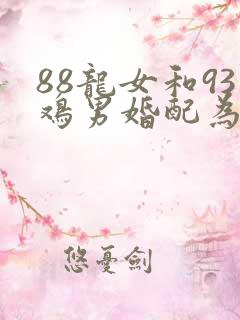 88龍女和93
鸡男婚配為
悠憂劍